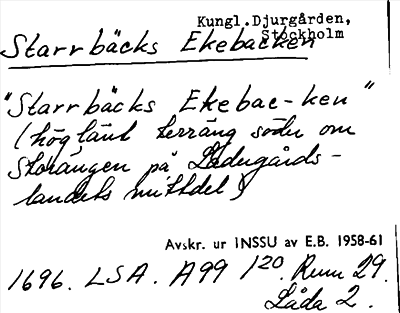 Kungl.Djurgården,
Stockholm
Starrbäcks Ekebacken
"Starrbäcks Ekebac-ken"
(höglänt terräng söder om
Storängen på Ladugårds-
landets mittdel)
Avskr. ur INSSU av E.B. 1958-61
1696. LSA. A99 1²⁰. Rum 29.
Låda 2.